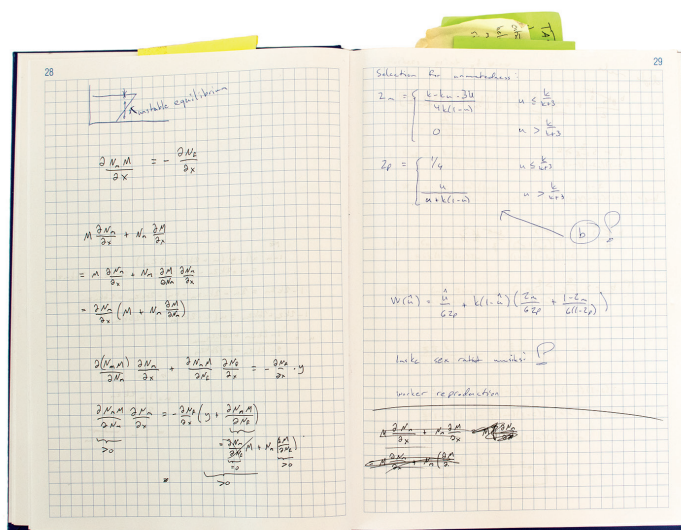 28
unstable equilibrium
∂NₙM/∂x = - ∂N_f/∂x
M ∂Nₙ/∂x + Nₙ ∂M/∂x
= M ∂Nₙ/∂x + Nₙ ∂M/∂Nₙ ∂Nₙ/∂x
= ∂Nₙ/∂x (M + Nₙ ∂M/∂Nₙ)
∂(NₙM)/∂Nₙ ∂Nₙ/∂x + ∂NₙM/∂N_f ∂N_f/∂x = - ∂N_f/∂x · y
∂NₙM/∂Nₙ ∂Nₙ/∂x = - ∂N_f/∂x (y + ∂NₙM/∂N_f)
>0
= ∂Nₙ/∂N_f M + Nₙ ∂M/∂N_f
=0 >0
>0
29
Selection for unmatedness:
Zₘ = { (k-ku-3u)/(4k(1-u)) u ≤ k/(k+3)
0 u > k/(k+3)
Zp = { 1/4 u ≤ k/(k+3)
u/(u+k(1-u)) u > k/(k+3)
b ?
W(û) = û/(G Zp) + k(1-û) (Zₘ/(G Zp) + (1-Zₘ)/(G(1-Zp)))
sex ratio ?
worker reproduction
M ∂Nₙ/∂x + Nₙ ∂M/∂x